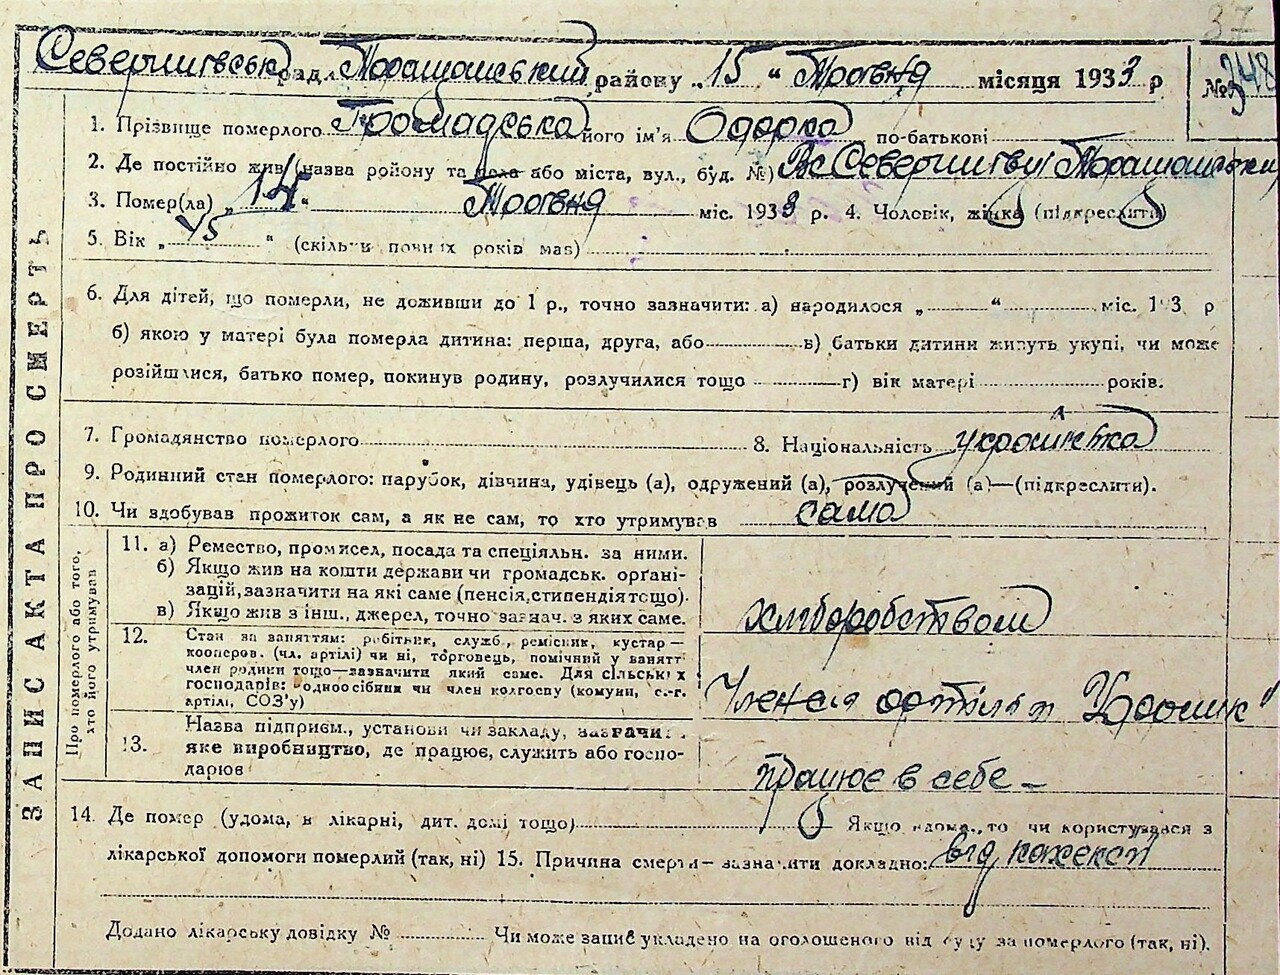 37
Северинівська рада Таращанський району „15“ Травня місяця 1933 р
№ 248
1. Прізвище померлого Громадська його ім'я Одарка по-батькові
2. Де постійно жив (назва району та села або міста, вул., буд. №) В с Северинівці Таращанський
3. Помер(ла) „14“ Травня міс. 1933 р. 4. Чоловік, жінка (підкреслити)
5. Вік „45“ (скільки повних років має)
6. Для дітей, що померли, не доживши до 1 р., точно зазначити: а) народилося „ “ міс. 193 р
б) якою у матері була померла дитина: перша, друга, або в) батьки дитини живуть укупі, чи може
розійшлися, батько помер, покинув родину, розлучилися тощо г) вік матері років.
7. Громадянство померлого 8. Національність українька
9. Родинний стан померлого: парубок, дівчина, удівець (а), одружений (а), розлучений (а)—(підкреслити).
10. Чи здобував прожиток сам, а як не сам, то хто утримував сама
ЗАПИС АКТА ПРО СМЕРТЬ
Про померлого або того,
хто його утримував
11. а) Ремество, промисел, посада та спеціяльн. за ними.
б) Якщо жив на кошти держави чи громадськ. орґані-
зацій, зазначити на які саме (пенсія, стипендія тощо).
в) Якщо жив з інш., джерел, точно зазнач. з яких саме.
хліборобством
12. Стан за заняттям: робітник, служб., ремісник, кустар—
кооперов. (чл. артілі) чи ні, торговець, помічний у занятті
член родини тощо—зазначити який саме. Для сільських
господарів: одноосібник чи член колгоспу (комуни, с.-г.
артілі, СОЗ'у)
Членся артілі
13. Назва підприєм., установи чи закладу, зазначити
яке виробництво, де працює, служить або госпо-
дарює
працює в себе –
14. Де помер (удома, в лікарні, дит. домі тощо) Якщо вдома, то чи користувався з
лікарської допомоги померлий (так, ні) 15. Причина смерти—зазначити докладно: від кахексії
Додано лікарську довідку № Чи може запис укладено на оголошеного від суду за померлого (так, ні).